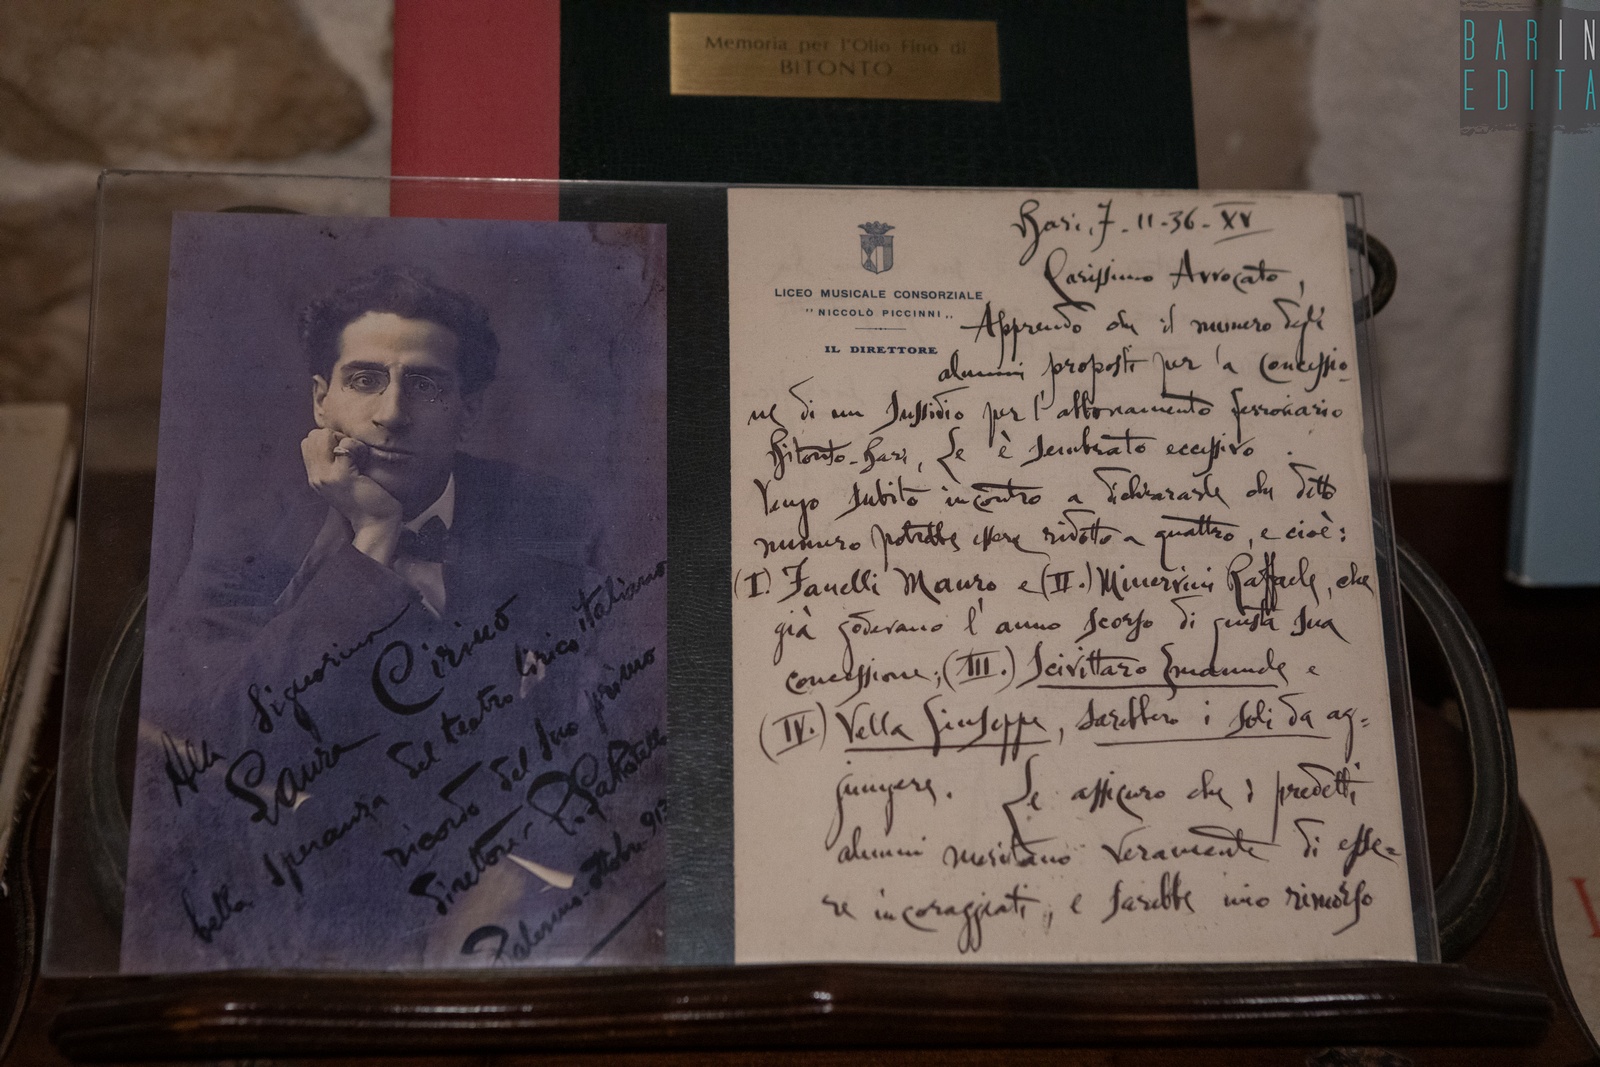 Memoria per l'Olio Fino di
BITONTO
BARIN
EDITA
Alla Signorina
Laura Cirino
bella speranza del teatro lirico italiano
ricordo del suo primo
direttore P.
Palermo - Ottobre 913
LICEO MUSICALE CONSORZIALE
"NICCOLÒ PICCINNI"
IL DIRETTORE
Bari, 7-11-36-XV
Carissimo Avvocato,
Apprendo che il numero degli
alunni proposti per la concessio-
ne di un sussidio per l'abbonamento ferroviario
Bitonto-Bari, Le è sembrato eccessivo.
Vengo subito incontro a dichiararle che detto
numero potrebbe essere ridotto a quattro, e cioè:
(I.) Fanelli Mauro e (II.) Minervini Raffaele, che
già godevano l'anno scorso di giusta sua
concessione; (III.) Scivittaro Emanuele e
(IV.) Vella Giuseppe, sarebbero i soli da ag=
giungere. Le assicuro che i predetti
alunni meritano veramente di esse=
re incoraggiati, e sarebbe mio rimorso